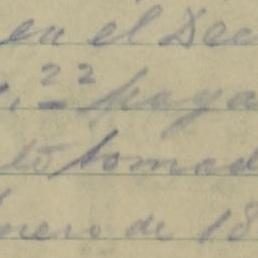 en el Dec
22 paga
to tomad
nero de 18